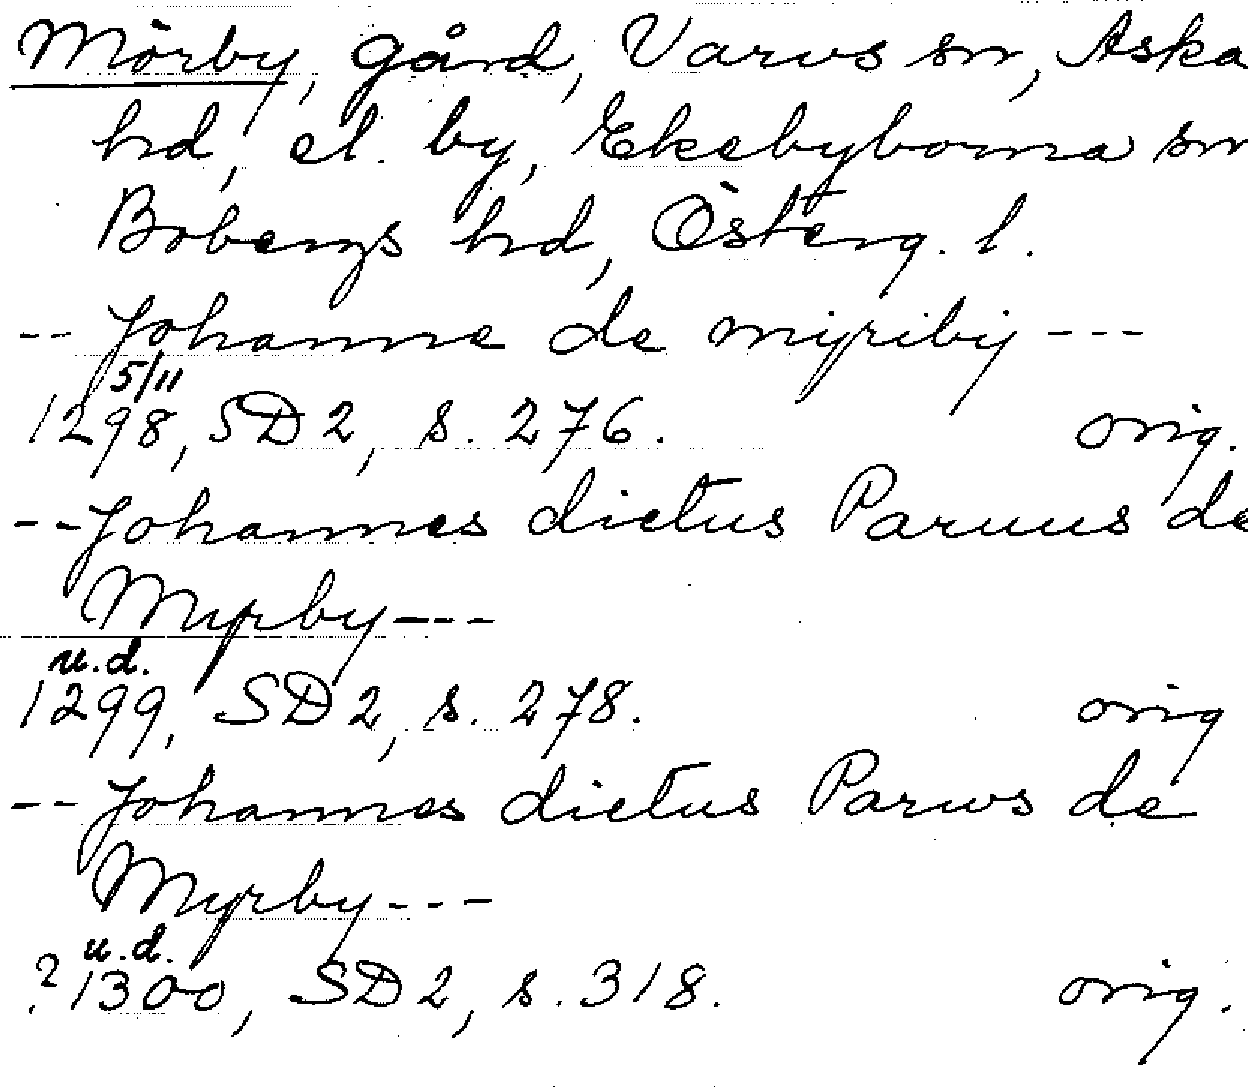 Mörby, gård, Varvs sn, Aska
hd, el. by, Ekebyborna sn
Bobergs hd, Österg. l.
-- Johanne de myriby ---
5/11
1298, SD 2, s. 276. orig.
-- Johannes dictus Paruus de
Myrby ---
u.d.
1299, SD 2, s. 278. orig
-- Johannes dictus Parws de
Myrby ---
u.d.
? 1300, SD 2, s. 318. orig.